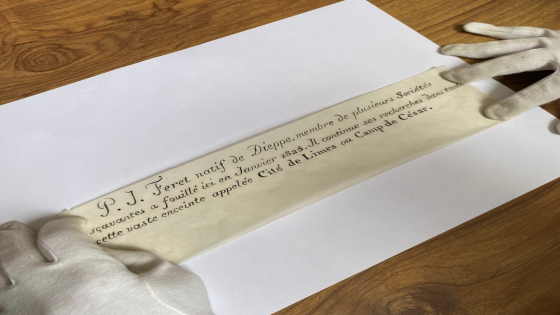 P. J. Feret natif de Dieppe, membre de plusieurs Sociétés
sçavantes a fouillé ici en Janvier 1825. Il continue ses recherches dans toute
cette vaste enceinte appelée Cité de Limes ou Camp de César.